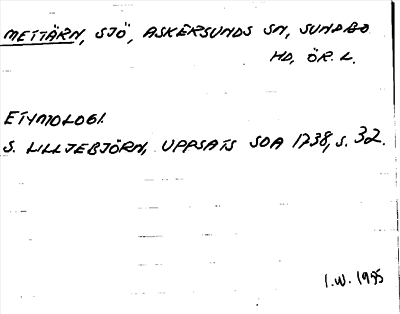 METTÄRN, SJÖ, ASKERSUNDS SN, SUNDBO
HD, ÖR. L.
ETYMOLOGI.
S. LILLJEBJÖRN, UPPSATS SOA 1738, S. 32.
I.W. 1995